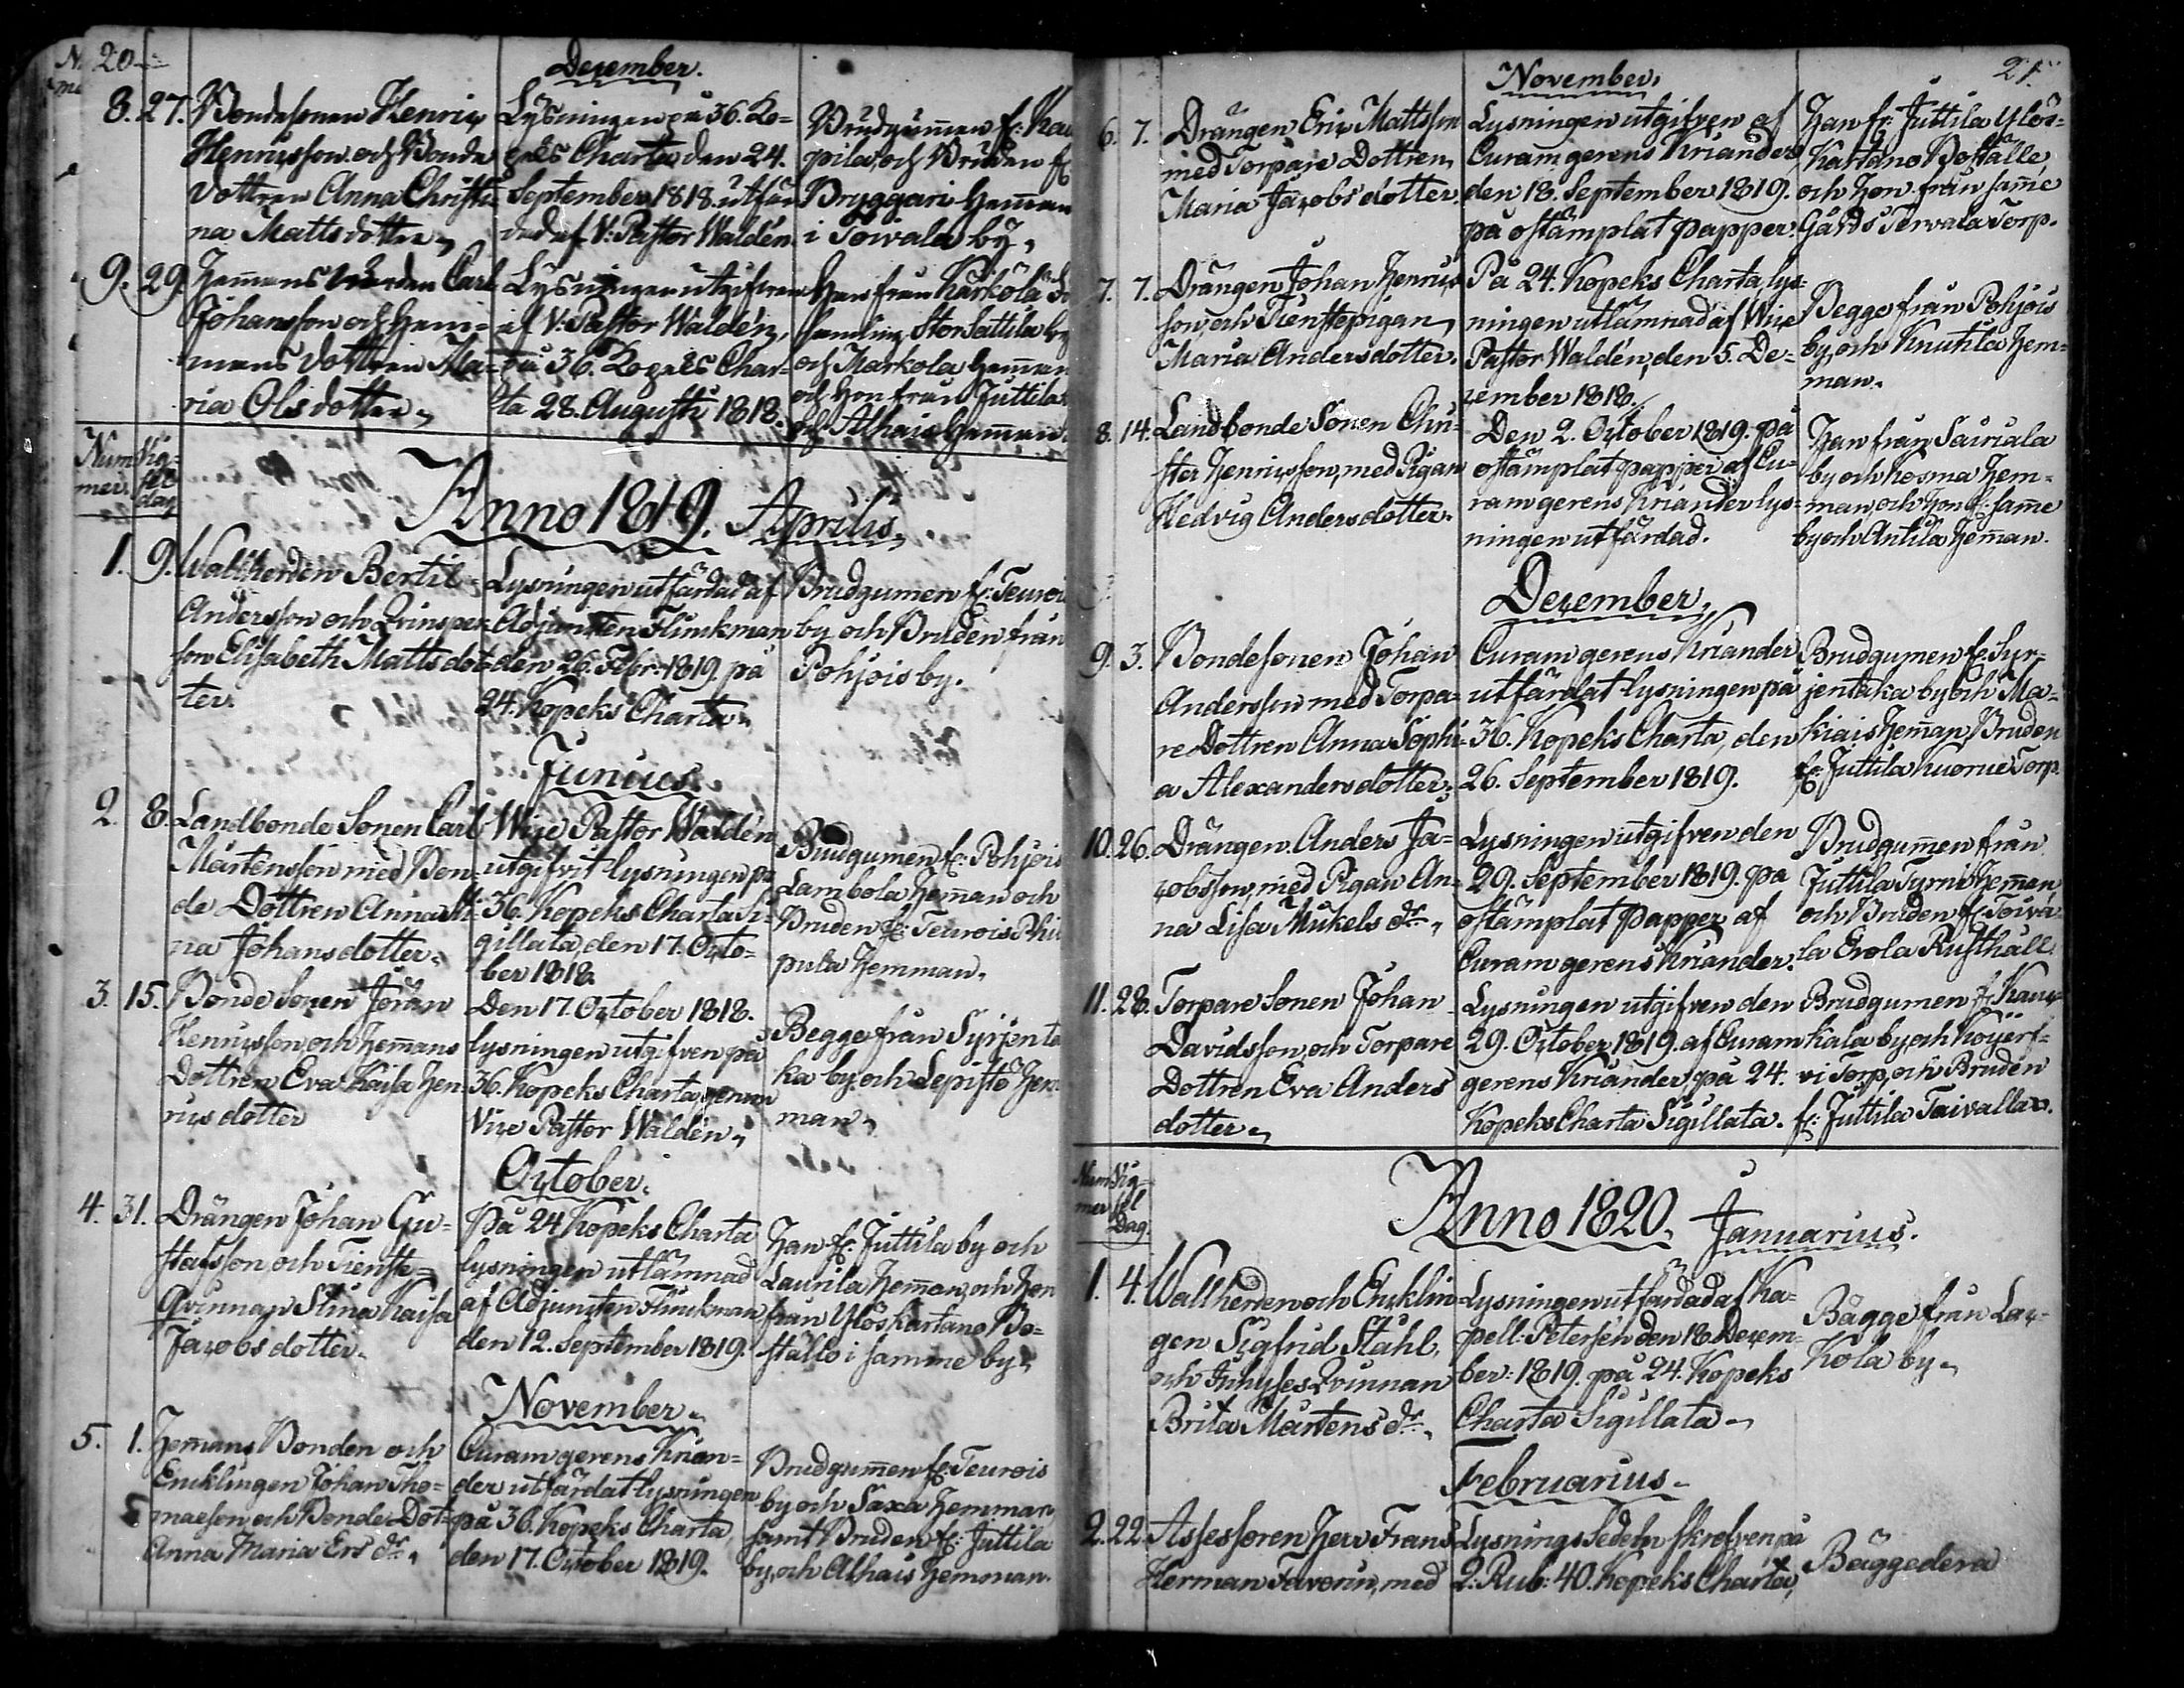 20
December.
8. 27. Bondesonen Henric
Henricsson och Bonde
dottren Anna Christi-
na Matts dotter
Lysningen på 36. Ko-
peks Charta den 24.
September 1818. utfär-
dad af V: Pastor Waldén
Brudgumen fr:
pila, och Bruden fr
Bryggari Hemman
i Toivala by.
9. 29. Hemmans Värden Carl
Johansson och Hem-
mans dottren Ma-
ria Olsdotter
Lysningen utgifven
af V: Pastor Waldén,
på 36. Kopeks Char-
ta 28. Augusti 1818.
Han från Kärkölä
samling, Stor Sattila by
och Markola Hemman
och Hon från Juttila
och Alhais Hemman.
Num
mer.
Vig-
sel
dag
Anno 1819. Aprilis
1. 9. Wallherden Bertil
Andersson och Qvinsper-
son Elisabeth Matts dot-
ter.
Lysningen utfärdad af
Adjuncten Flinckman
den 26. Febr: 1819. på
24. Kopeks Charta
Brudgumen fr: Teurois
by och Bruden från
Pohjois by.
Junius
2. 8. Landbonde Sonen Carl
Mårtensson med Bon-
de Dottren Anna Sti-
na Johans dotter.
Wice Pastor Waldén
utgifvit lysningen på
36. Kopeks Charta Si-
gillata, den 17. Octo-
ber 1818.
Brudgumen fr: Pohjois
Lambola Hemman och
Bruden fr: Teurois
pula Hemman.
3. 15. Bonde Sonen Johan
Henricsson, och Hemmans
Dottren Eva Kaisa Hen
rics dotter
Den 17. October 1818.
lysningen utgifven på
36. Kopeks Charta, genom
Vice Pastor Waldén
Begge från Syrjenta
ka by och Lepistö Hem-
man
October.
4. 31. Drängen Johan Gu-
stafsson och Tienste-
Qvinnan Stina Kaisa
Jacobs dotter.
På 24 Kopeks Charta
lysningen utlämnad
af Adjuncten Flinckman
den 12. September 1819.
Han fr: Juttila by och
Laurila Heman, och Hon
från Ylöskartano Bo-
ställe i samme by.
November
5. 1. Hemans Bonden och
Encklingen Johan Tho-
maeson, och Bonde Dot-
Anna Maria Ers dr.
Curam gerens Krian-
der utfärdat lysningen
på 36. Kopeks Charta
den 17. October 1819.
Brudgumen fr: Teurois
by och Saxa Hemman,
samt Bruden fr: Juttila
by, och Alhais Hemman.
21.
November.
6. 7. Drängen Eric Mattsson
med Torpare Dottren
Maria Jacobs dotter.
Lysningen utgifven af
Curam gerens Kriander
den 18. September 1819.
på ostämplat papper.
Han fr: Juttila Ylös-
Kartano Boställe,
och Hon från samme
Gårds Tervala Torp.
7. 7. Drängen Johan Henrics
son, och Tienstepigan
Maria Andersdotter.
På 24. Kopeks Charta, lys-
ningen utlämnad af Wice
Pastor Waldén, den 5. De-
cember 1818.
Begge från Pohjois
by, och Knutila Hem-
man.
8. 14. Landbonde Sonen Chri-
ster Henricsson, med Pigan
Hedvig Andersdotter.
Den 2. October 1819. på
ostämplat papper af Cu-
ram gerens Kriander lys-
ningen utfärdad.
Han från Sairiala
by och Kosma Hem-
man, och Hon fr: same
by och Antila Heman.
December
9. 3. Bondesonen Johan
Andersson med Torpa-
re Dottren Anna Sophi-
a Alexanders dotter.
Curam gerens Kriander
utfärdat lysningen på
36. Kopeks Charta, den
26. September 1819.
Brudgumen fr: Syr-
jentaka by och Ma-
kiais Heman, Bruden
fr: Juttila Torp.
10. 26. Drängen Anders Ja-
cobsson, med Pigan An-
na Lisa Mickels dr.
Lysningen utgifven den
29. September 1819. på
ostämplat Papper af
Curam gerens Kriander.
Brudgumen från
Juttila Tyrni Heman
och Bruden fr: Toiva-
la Erola Rusthåll.
11. 28. Torpare Sonen Johan
Davidsson, och Torpare
Dottren Eva Anders
dotter
Lysningen utgifven den
29. October 1819. af Curam
gerens Kriander, på 24.
Kopeks Charta Sigillata.
Brudgumen fr: Kauc-
kala by, och Köyjer-
vi Torp, och Bruden
fr: Juttila Taivalla.
Num
mer
Vig-
sel
Dag.
Anno 1820. Januarius.
1. 4. Wallherden och Encklin
gen Sigfrid Ståhl,
och Inhyses Qvinnan
Brita Mårtens dr.
Lysningen utfärdad af Ka-
pell: Petersén den 18 Decem-
ber: 1819. på 24. Kopeks
Charta Sigillata
Bägge från Lax-
kola by
Februarius
2. 22. Assessoren Herr Frans
Herman Favorin, med
Lysnings Sedeln skrefven på
2: Rub: 40. Kopeks Charta,
Bäggedera